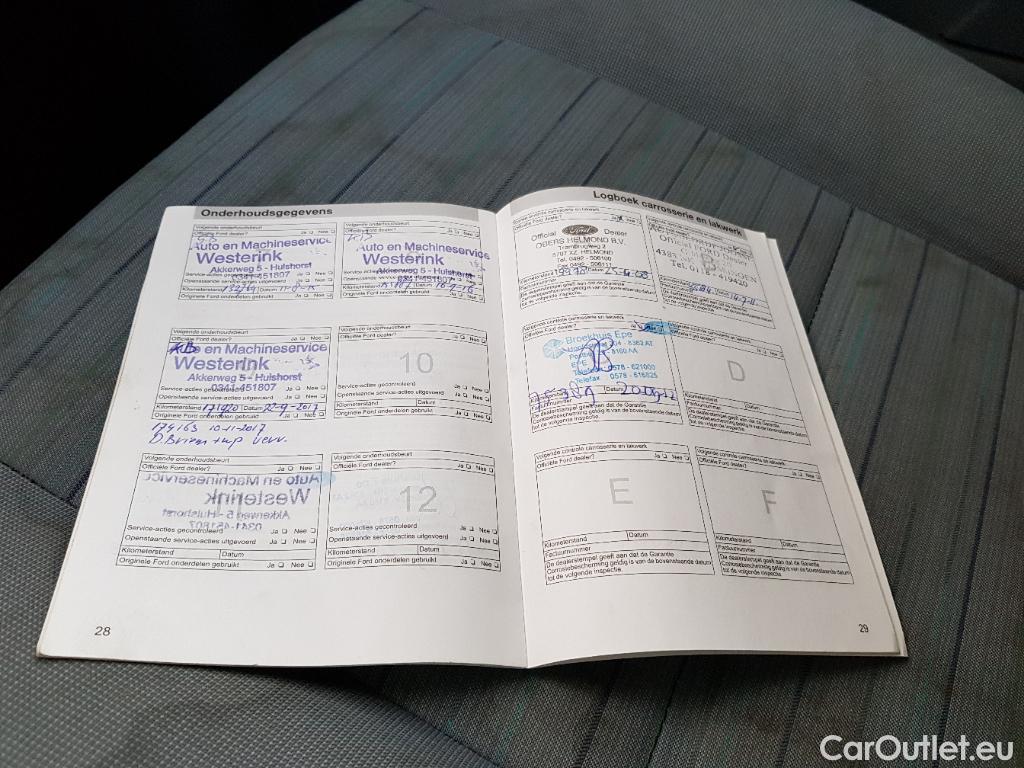 Onderhoudsgegevens
Volgende onderhoudsbeurt
Officiële Ford dealer? Ja Nee
Auto en Machineservice
Westerink
Akkerweg 5 - Hulshorst
0341-451807
Openstaande service-acties uitgevoerd
Kilometerstand Datum
Originele Ford onderdelen gebruikt Ja Nee
Volgende onderhoudsbeurt
Officiële Ford dealer? Ja Nee
Auto en Machineservice
Westerink
Akkerweg 5 - Hulshorst
0341-451807
Openstaande service-acties
Kilometerstand Datum
Originele Ford onderdelen gebruikt Ja Nee
Volgende onderhoudsbeurt
Officiële Ford dealer? Ja Nee
en Machineservice
Westerink
Akkerweg 5 - Hulshorst
0341-451807
Service-acties gecontroleerd
Openstaande service-acties uitgevoerd Ja Nee
Kilometerstand 171920 Datum 12-9-2017
Originele Ford onderdelen gebruikt Ja Nee
174163 10-11-2017
Volgende onderhoudsbeurt
Officiële Ford dealer? Ja Nee
10
Service-acties gecontroleerd Ja Nee
Openstaande service-acties uitgevoerd Ja Nee
Kilometerstand Datum
Originele Ford onderdelen gebruikt Ja Nee
Volgende onderhoudsbeurt
Officiële Ford dealer? Ja Nee
Auto en Machineservice
Westerink
Akkerweg 5 - Hulshorst
0341-451807
Service-acties gecontroleerd Ja Nee
Openstaande service-acties uitgevoerd Ja Nee
Kilometerstand Datum
Originele Ford onderdelen gebruikt Ja Nee
Volgende onderhoudsbeurt
Officiële Ford dealer? Ja Nee
12
Service-acties gecontroleerd Ja Nee
Openstaande service-acties uitgevoerd Ja Nee
Kilometerstand Datum
Originele Ford onderdelen gebruikt Ja Nee
28
Logboek carrosserie en lakwerk
Official Ford Dealer
OBERS HELMOND B.V.
Trambrugweg 2
5707 XZ HELMOND
Tel. 0492 - 506100
Fax 0492 - 506111
Kilometerstand Datum
De dealerstempel geeft aan dat de Garantie
Corrosiebescherming geldig is van de bovenstaande datum
tot de volgende inspectie.
B
Volgende controle carrosserie en lakwerk
Officiële Ford dealer?
Broekhuis Epe
204 - 8162 AT
8160 AA
EPE
Telefoon 0578 - 621000
Telefax 0578 - 616825
De dealerstempel geeft aan dat de Garantie
Corrosiebescherming geldig is van de bovenstaande datum
tot de volgende inspectie.
Volgende controle carrosserie en lakwerk
Officiële Ford dealer? Ja Nee
D
Kilometerstand Datum
Factuurnummer
De dealerstempel geeft aan dat de Garantie
Corrosiebescherming geldig is van de bovenstaande datum
tot de volgende inspectie.
Volgende controle carrosserie en lakwerk
Officiële Ford dealer? Ja Nee
E
Kilometerstand Datum
Factuurnummer
De dealerstempel geeft aan dat de Garantie
Corrosiebescherming geldig is van de bovenstaande datum
tot de volgende inspectie.
Volgende controle carrosserie en lakwerk
Officiële Ford dealer? Ja Nee
F
Kilometerstand Datum
Factuurnummer
De dealerstempel geeft aan dat de Garantie
Corrosiebescherming geldig is van de bovenstaande datum
tot de volgende inspectie.
29
CarOutlet.eu